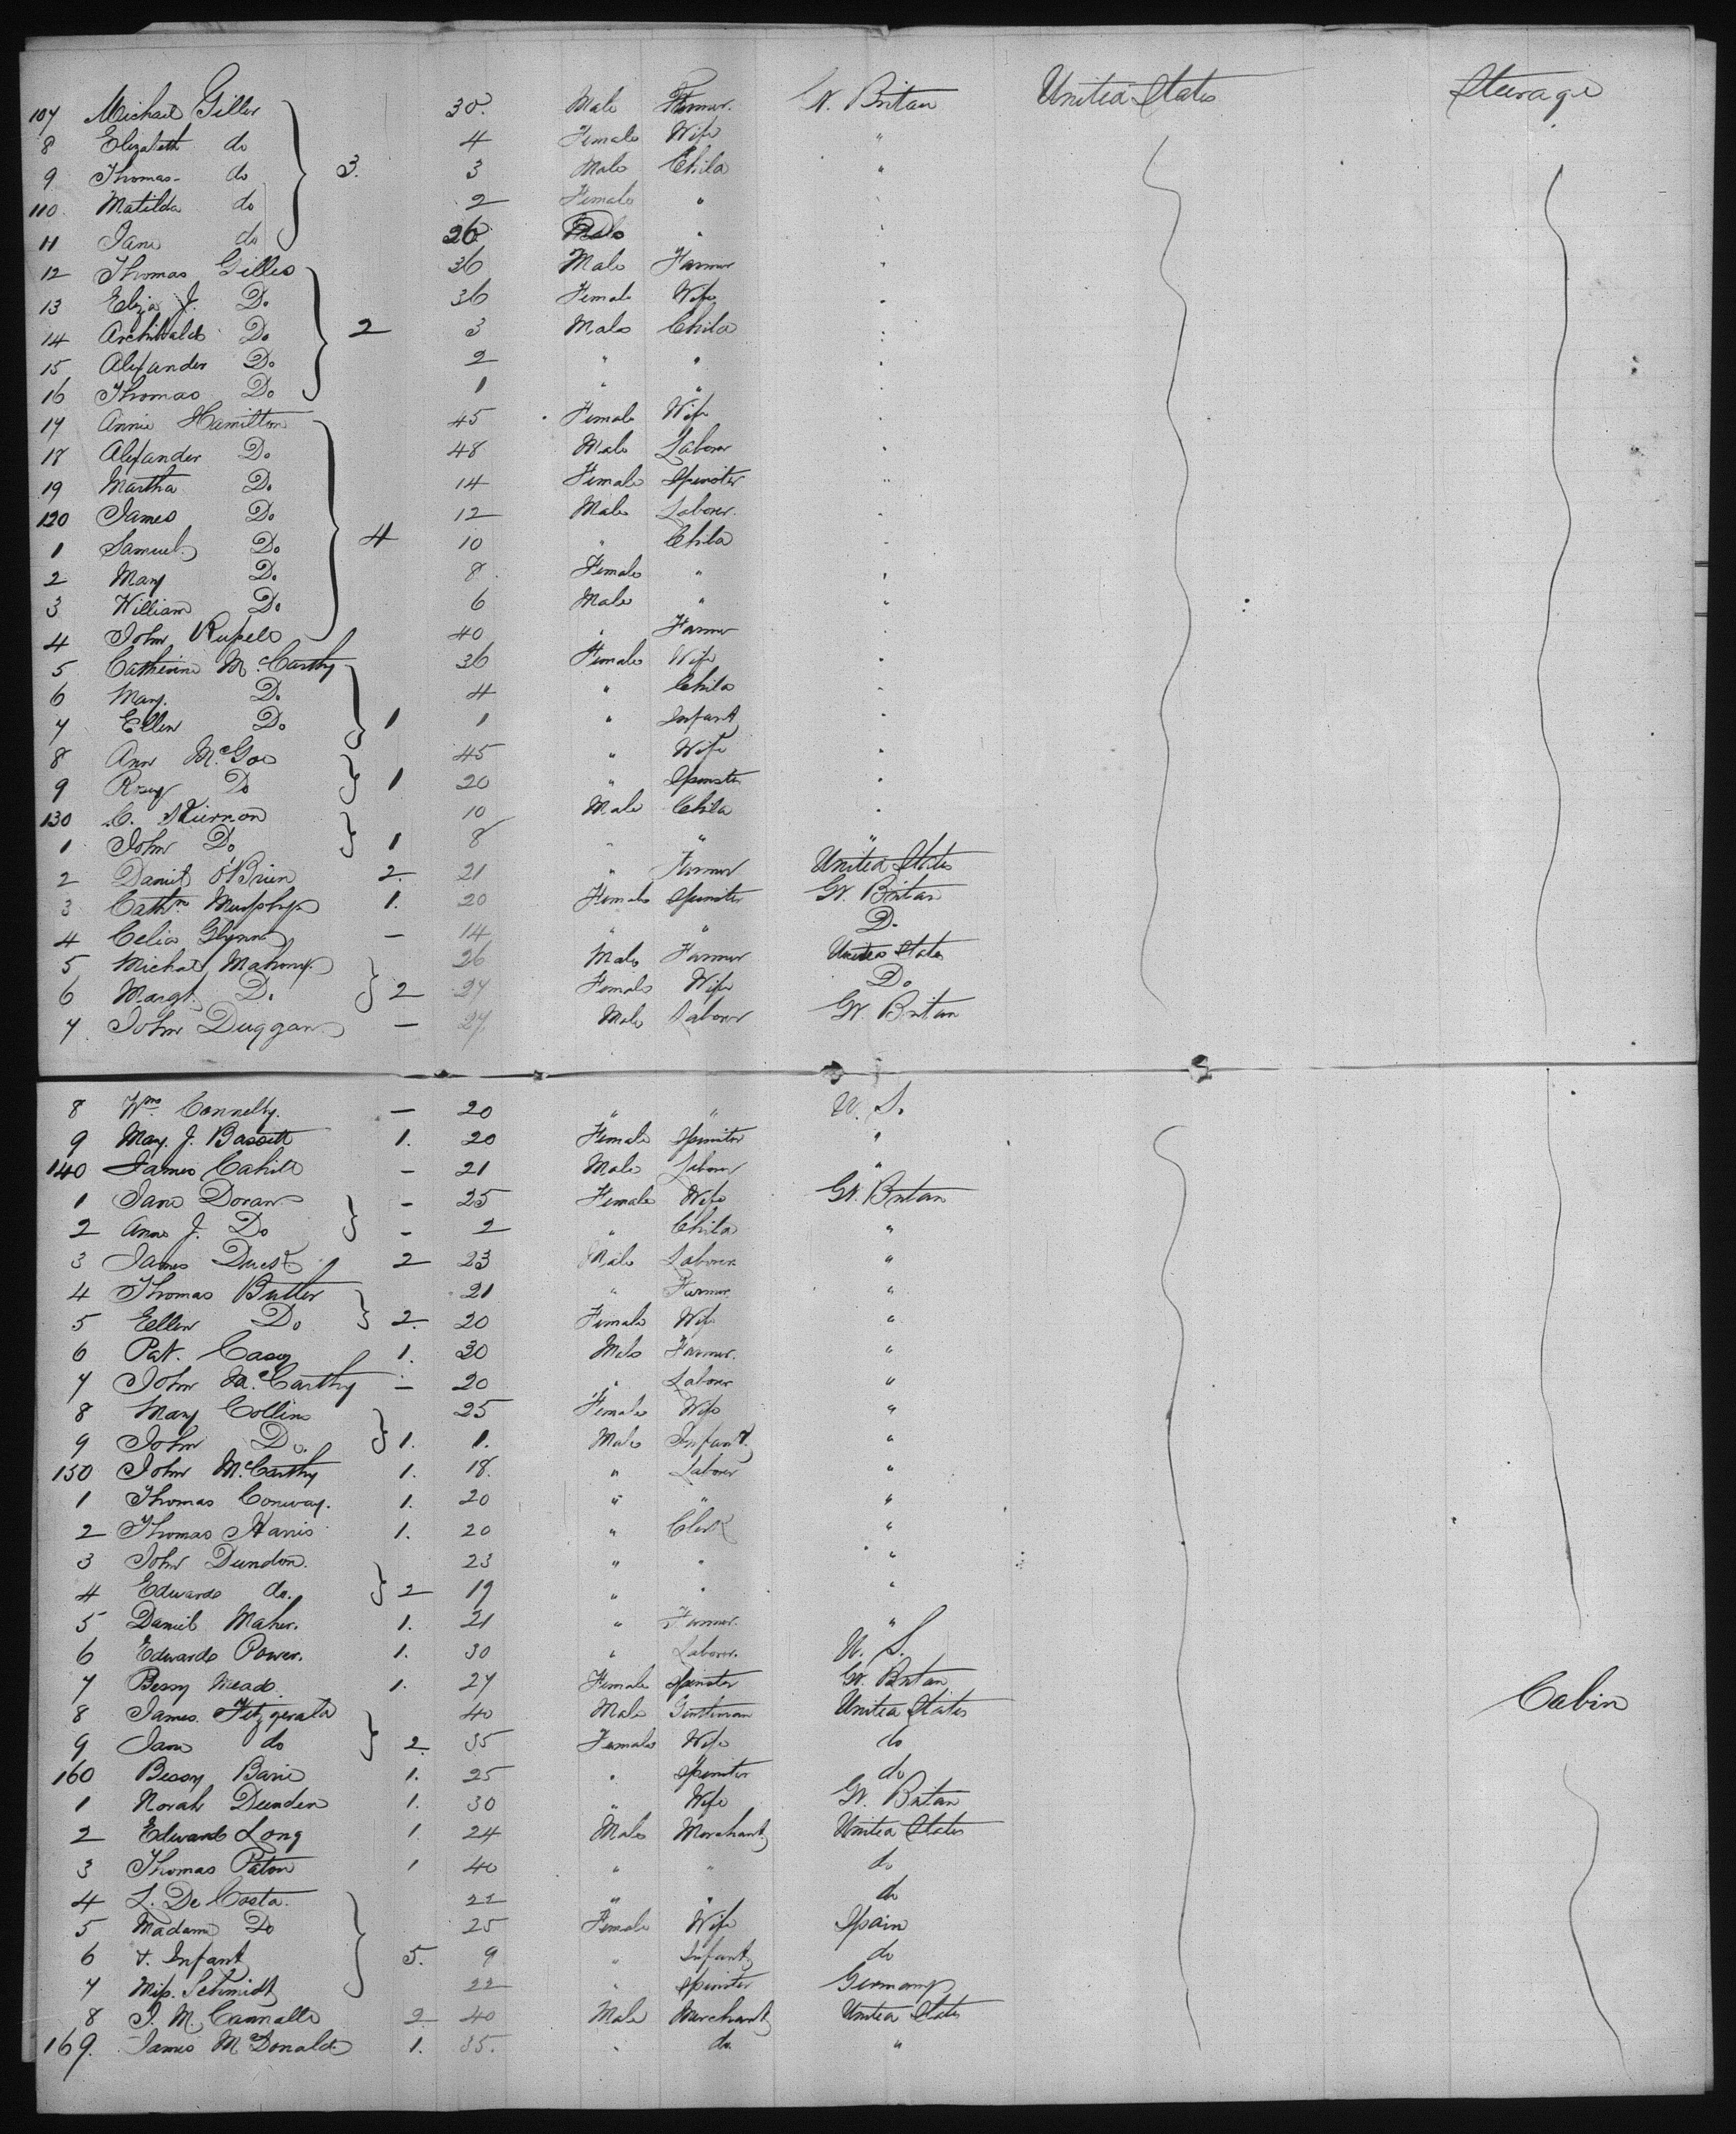 107 Michael Giller 30. Male Farmer. Gt. Britan United States Steerage
8 Elizabeth do 4 Female Wife "
9 Thomas do 3. 3 Male Child "
110. Matilda do 2 Female " "
11 Jane do 26 Male " "
12 Thomas Gilles 36 Male Farmer "
13 Eliza J. Do 36 Female Wife "
14 Archibald Do 2 3 Male Child "
15 Alexander Do 2 " " "
16 Thomas Do 1 " " "
17 Annie Hamilton 45 Female Wife "
18 Alexander Do 48 Male Laborer "
19 Martha Do 14 Female Spinster "
120 James Do 12 Male Laborer. "
1 Samuel Do 4 10 " Child "
2 Mary Do 8 Female " "
3 William Do 6 Male " "
4 John 40 " Farmer "
5 Catherine McCarthy 36 Female Wife "
6 Mary. Do 4 " Child "
7 Ellen Do 1 1 " Infant "
8 Ann McGoe 45 " Wife "
9 Rosey Do 1 20 " Spinster "
130 C. 10 Male Child "
1 John Do 1 8 " " "
2 Daniel O'Brien 2. 21 " Farmer United States
3 Cathne Murphy 1. 20 Female Spinster Gt. Britan
4 Celia Glynn — 14 " " Do
5 Michal Mahony 26 Male Farmer United States
6 Margt. Do 2 27 Female Wife Do
7. John Duggan — 27 Male Laborer Gt Britan
8 Wm Connelly. — 20 " " U. S.
9 Mary. J. Bassett 1. 20 Female Spinster "
140 James Cahill — 21 Male Laborer "
1 Jane Doran — 25 Female Wife Gt. Britan
2 Anne J. Do — 2 " Child "
3 James 2 23 Male Laborer "
4 Thomas Butler 21 " Farmer. "
5 Eellen Do 2. 20 Female Wife "
6 Pat. Casey 1. 30 Male Farmer. "
7 John McCarthy — 20 " Laborer "
8 Mary Collins 25 Female Wife "
9 John Do. 1. 1. Male Infant. "
150 John McCarthy 1. 18. " Laborer "
1 Thomas Conway. 1. 20 " " "
2 Thomas Harris 1. 20 " Clerk "
3 John Dundon. 23 " " "
4 Edward do. 2 19 " " "
5 Daniel Maher. 1. 21 " Farmer. "
6 Edward Power. 1. 30 " Laborer. U. S.
7 Bessy Mead. 1. 27 Female Spinster Gt. Britan
8 James Fitzgerald 40 Male Gentleman United States Cabin
9 Jane do 2. 35 Female Wife do
160 Bessy 1. 25 " Spinster do
1 Norah Dunden 1. 30 " Wife Gt. Britan
2 Edward Long 1. 24 Male Merchant United States
3 Thomas Paton 1 40 " " do
4 L. De Costa. 22 " " do
5 Madame Do 25 Female Wife Spain
6 & Infant 5. 9 " Infant do
7 Miss. Schmidt 22 " Spinster Germany
8 J. M. 2 40 Male Merchant United States
169. James McDonald 1. 35. " do. "